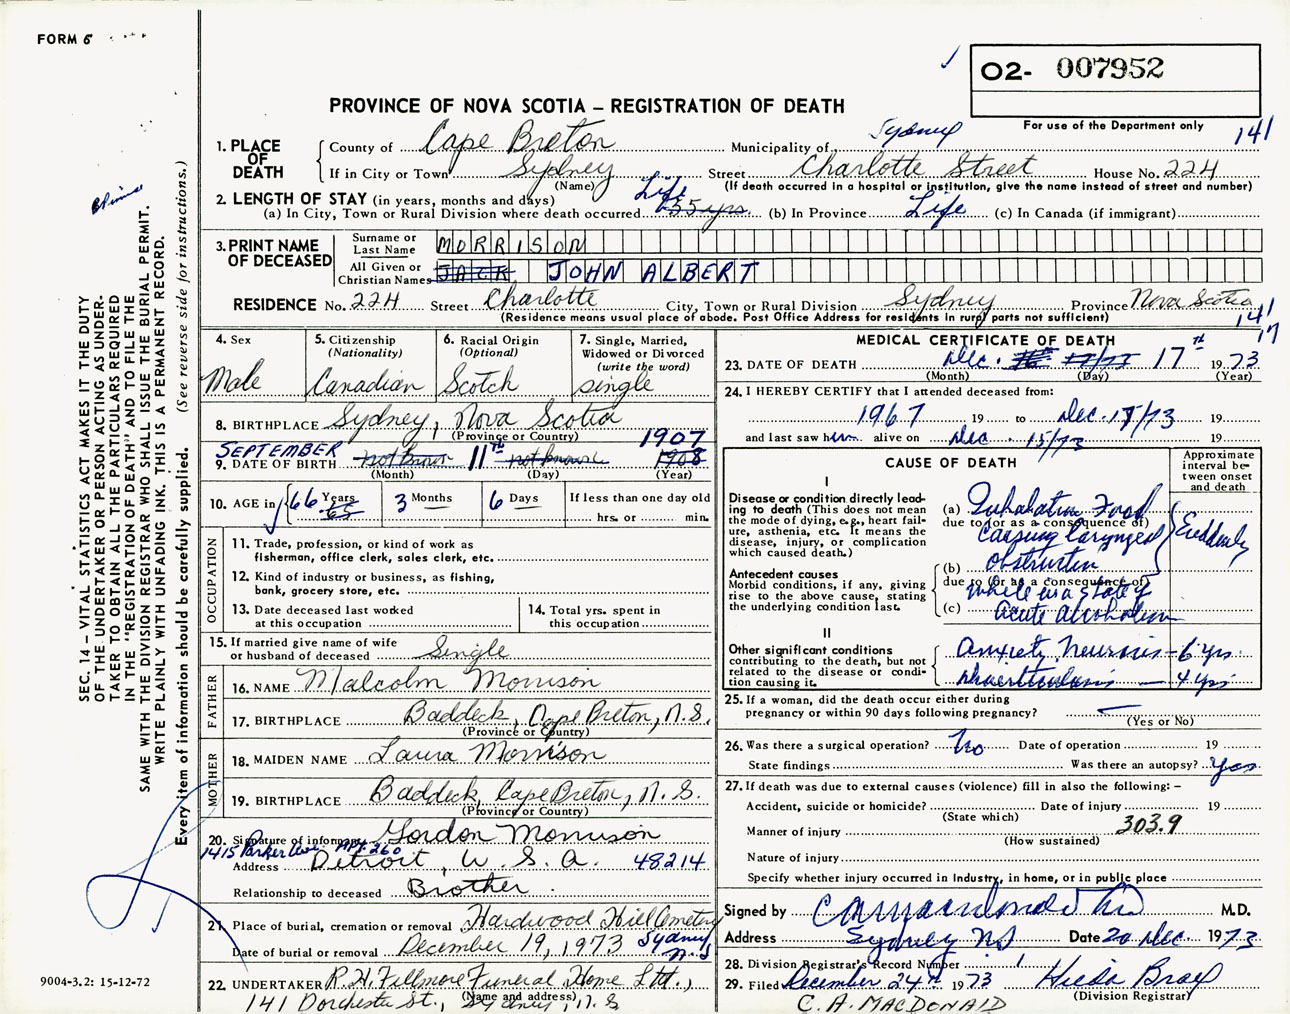 FORM 6
02- 007952
PROVINCE OF NOVA SCOTIA – REGISTRATION OF DEATH
For use of the Department only
141
1. PLACE OF DEATH
County of Cape Breton Municipality of Sydney
If in City or Town Sydney Street Charlotte Street House No. 224
(Name) (If death occurred in a hospital or institution, give the name instead of street and number)
2. LENGTH OF STAY (in years, months and days)
(a) In City, Town or Rural Division where death occurred 55 yrs. Life (b) In Province Life (c) In Canada (if immigrant)
3. PRINT NAME OF DECEASED
Surname or Last Name MORRISON
All Given or Christian Names JACK JOHN ALBERT
RESIDENCE No. 224 Street Charlotte City, Town or Rural Division Sydney Province Nova Scotia
(Residence means usual place of abode. Post Office Address for residents in rural parts not sufficient)
141
17
4. Sex
Male
5. Citizenship (Nationality)
Canadian
6. Racial Origin (Optional)
Scotch
7. Single, Married, Widowed or Divorced (write the word)
single
8. BIRTHPLACE Sydney, Nova Scotia
(Province or Country)
9. DATE OF BIRTH SEPTEMBER not known 11th not known 1907 1908
(Month) (Day) (Year)
10. AGE in 66 65 Years 3 Months 6 Days If less than one day old
hrs. or min.
OCCUPATION
11. Trade, profession, or kind of work as fisherman, office clerk, sales clerk, etc.
12. Kind of industry or business, as fishing, bank, grocery store, etc.
13. Date deceased last worked at this occupation
14. Total yrs. spent in this occupation
15. If married give name of wife or husband of deceased Single
FATHER
16. NAME Malcolm Morrison
17. BIRTHPLACE Baddeck, Cape Breton, N.S.
(Province or Country)
MOTHER
18. MAIDEN NAME Laura Morrison
19. BIRTHPLACE Baddeck, Cape Breton, N.S.
(Province or Country)
20. Signature of informant Gordon Morrison
1415 Parker Ave. APT. 260
Address Detroit, U.S.A. 48214
Relationship to deceased Brother
21. Place of burial, cremation or removal Hardwood Hill Cemetery
Date of burial or removal December 19, 1973 Sydney N.S
22. UNDERTAKER R.H. Fillmore Funeral Home Ltd.,
(Name and address)
141 Dorchester St., Sydney, N.S
MEDICAL CERTIFICATE OF DEATH
23. DATE OF DEATH Dec. 17th 1973
(Month) (Day) (Year)
24. I HEREBY CERTIFY that I attended deceased from:
1967 19 to Dec. 17/73 19
and last saw him alive on Dec. 15/73 19
CAUSE OF DEATH
Approximate interval between onset and death
I
Disease or condition directly leading to death (This does not mean the mode of dying, e.g., heart failure, asthenia, etc. It means the disease, injury, or complication which caused death.)
(a) Inhalation Food
due to (or as a consequence of)
causing laryngeal
(b) obstruction
due to (or as a consequence of)
while in a state of
(c) acute alcoholism
Suddenly
Antecedent causes
Morbid conditions, if any, giving rise to the above cause, stating the underlying condition last.
II
Other significant conditions contributing to the death, but not related to the disease or condition causing it.
Anxiety Neurosis – 6 yrs.
Diverticulosis – 4 yrs
25. If a woman, did the death occur either during pregnancy or within 90 days following pregnancy?
(Yes or No)
26. Was there a surgical operation? No Date of operation 19
State findings Was there an autopsy? Yes
27. If death was due to external causes (violence) fill in also the following: –
Accident, suicide or homicide? Date of injury 19
(State which)
Manner of injury 303.9
(How sustained)
Nature of injury
Specify whether injury occurred in Industry, in home, or in public place
Signed by M.D.
Address Sydney NS Date 20 Dec. 1973
28. Division Registrar's Record Number
29. Filed December 24th 1973
(Division Registrar)
C. A. MACDONALD
SEC. 14 – VITAL STATISTICS ACT MAKES IT THE DUTY
OF THE UNDERTAKER OR PERSON ACTING AS UNDERTAKER TO OBTAIN ALL THE PARTICULARS REQUIRED
IN THE "REGISTRATION OF DEATH" AND TO FILE THE
SAME WITH THE DIVISION REGISTRAR WHO SHALL ISSUE THE BURIAL PERMIT.
WRITE PLAINLY WITH UNFADING INK. THIS IS A PERMANENT RECORD.
Every item of information should be carefully supplied. (See reverse side for instructions.)
9004-3.2: 15-12-72